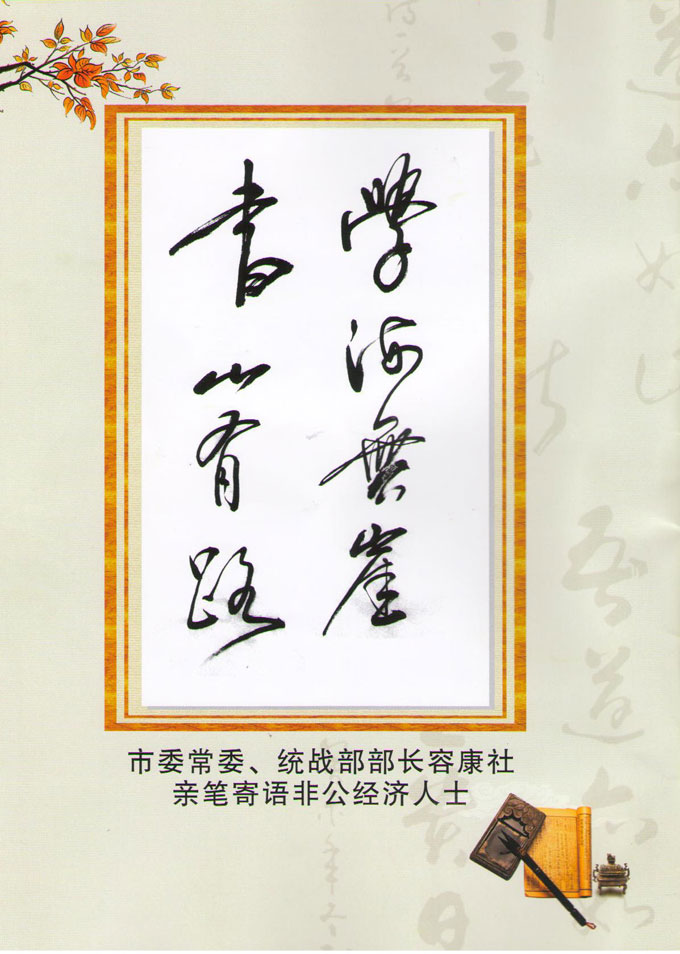 學海無崖
書山有路
市委常委、统战部部长容康社
亲笔寄语非公经济人士